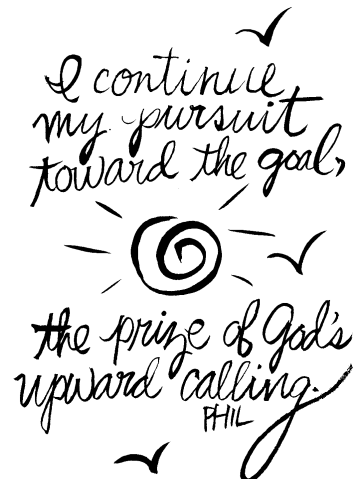 I continue
my pursuit
toward the goal,
the prize of God's
upward calling.
PHIL